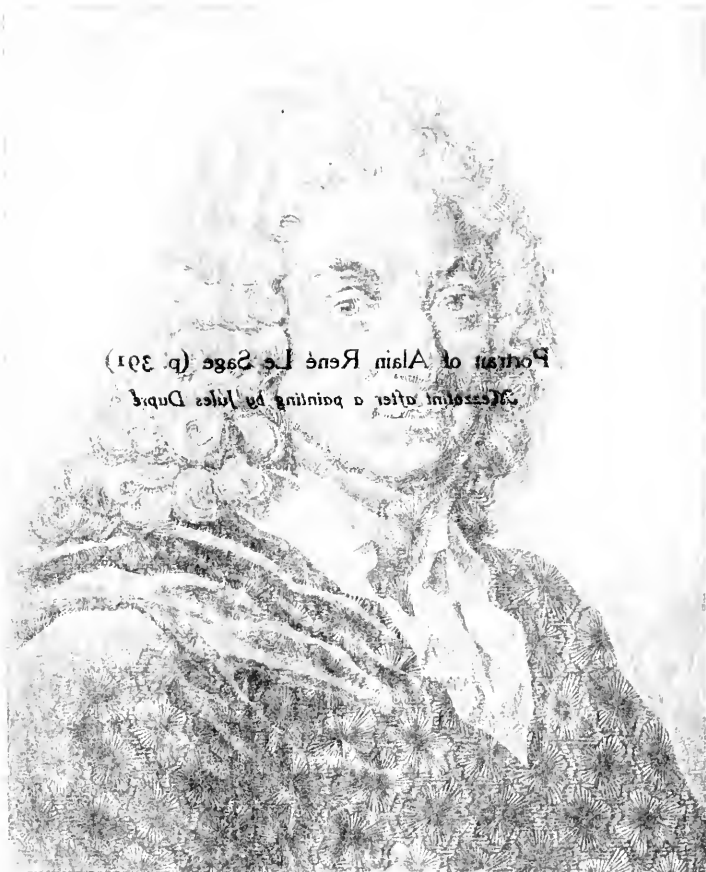 Portrait of Alain René Le Sage (p. 391)
Mezzotint after a painting by Jules Dupré